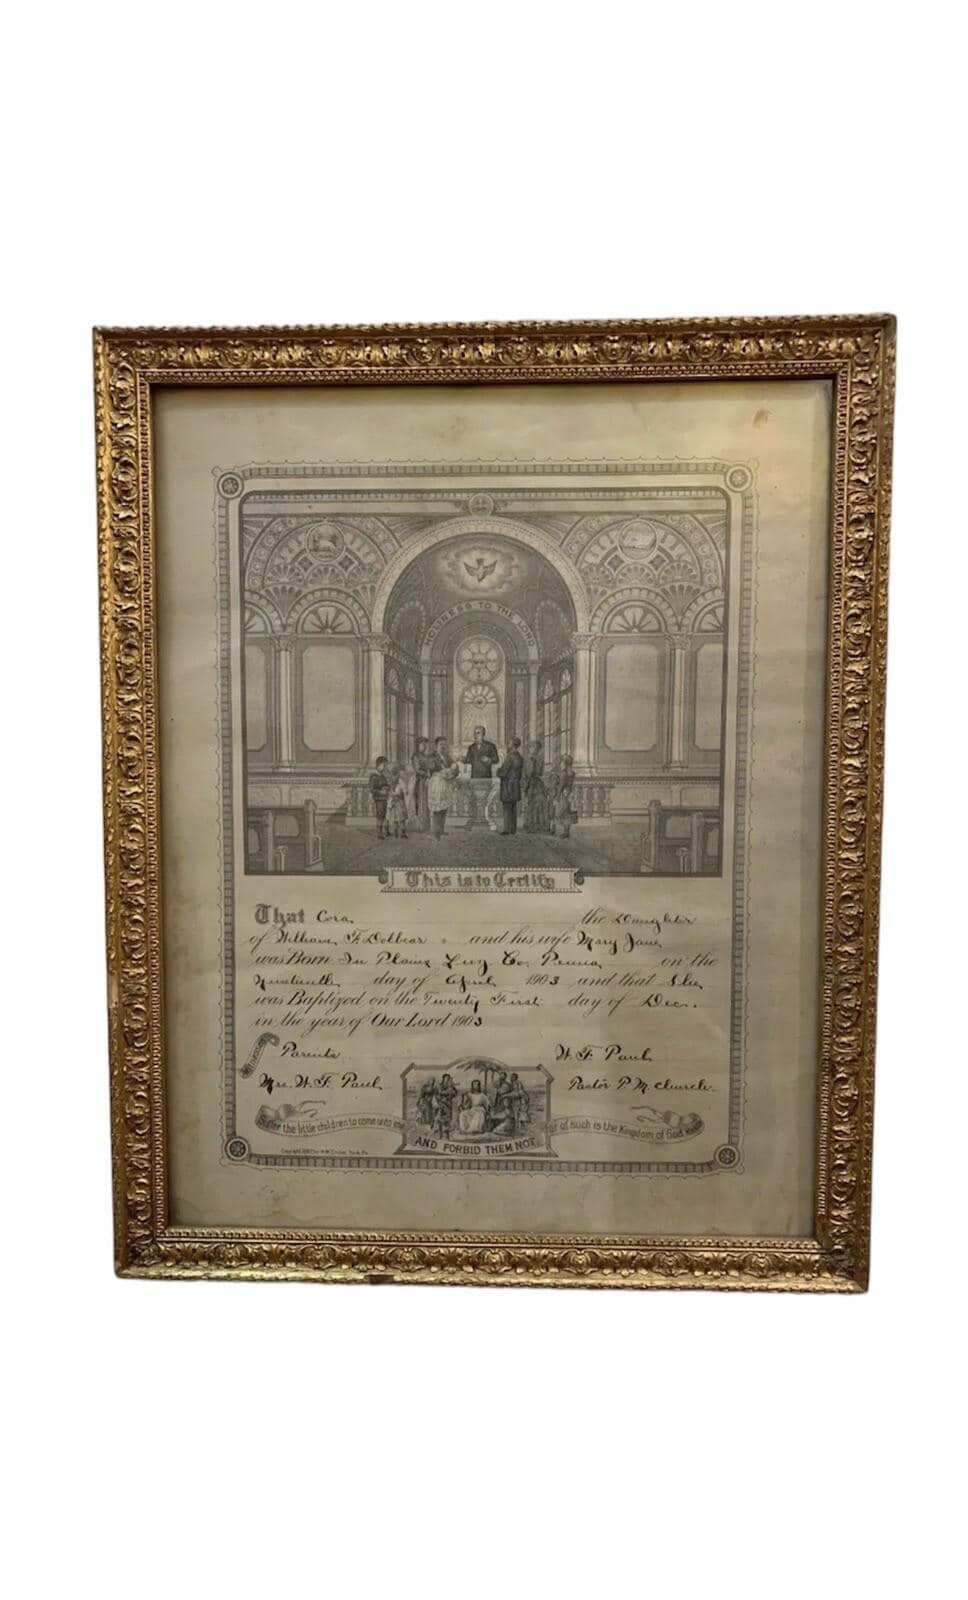 HOLINESS TO THE LORD
This is to Certify
That Cora the Daughter
of William F. Dolbear and his wife Mary Jane
was Born In Plains Luz. Co. Penna on the
Nineteenth day of April 1903 and that She
was Baptized on the Twenty First day of Dec.
in the year of Our Lord 1903
Parents W. F. Paul
Mrs. W. F. Paul Pastor P. M. Church
Suffer the little children to come unto me
AND FORBID THEM NOT
for of such is the Kingdom of God
Copyright